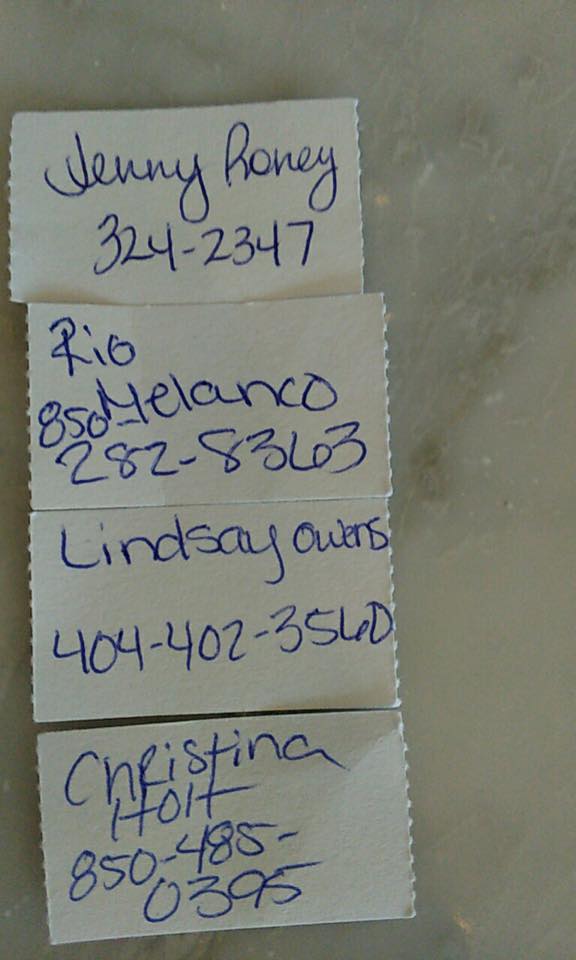 Jenny Roney
324-2347
Rio
Melanco
850-
282-8363
Lindsay Owens
404-402-3560
Christina
Holt
850-485-
0395